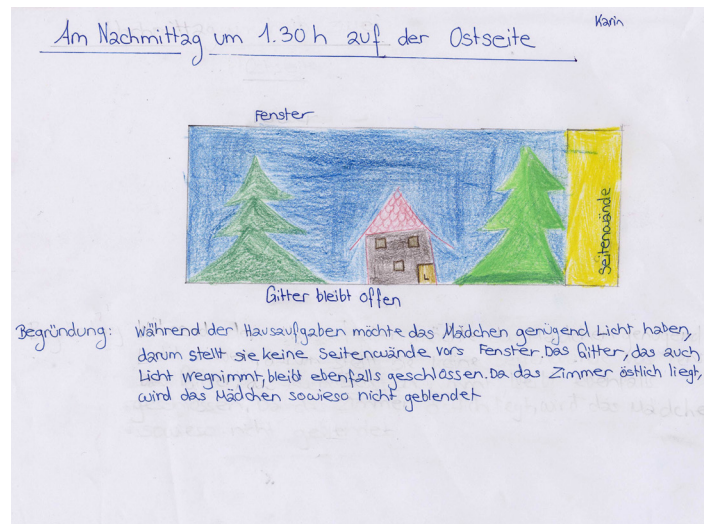 Karin
Am Nachmittag um 1.30 h auf der Ostseite
Fenster
Seitenwände
Gitter bleibt offen
Begründung: Während der Hausaufgaben möchte das Mädchen genügend Licht haben,
darum stellt sie keine Seitenwände vors Fenster. Das Gitter, das auch
Licht wegnimmt, bleibt ebenfalls geschlossen. Da das Zimmer östlich liegt,
wird das Mädchen sowieso nicht geblendet